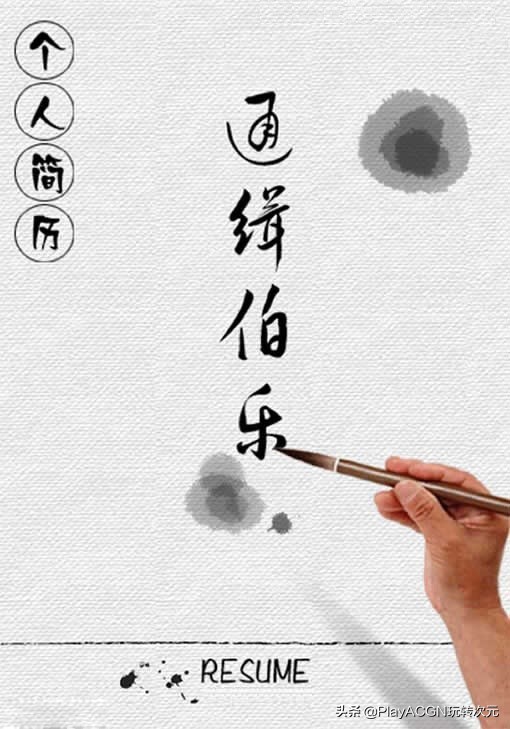 个人简历
通缉伯乐
RESUME
头条 @PlayACGN玩转次元